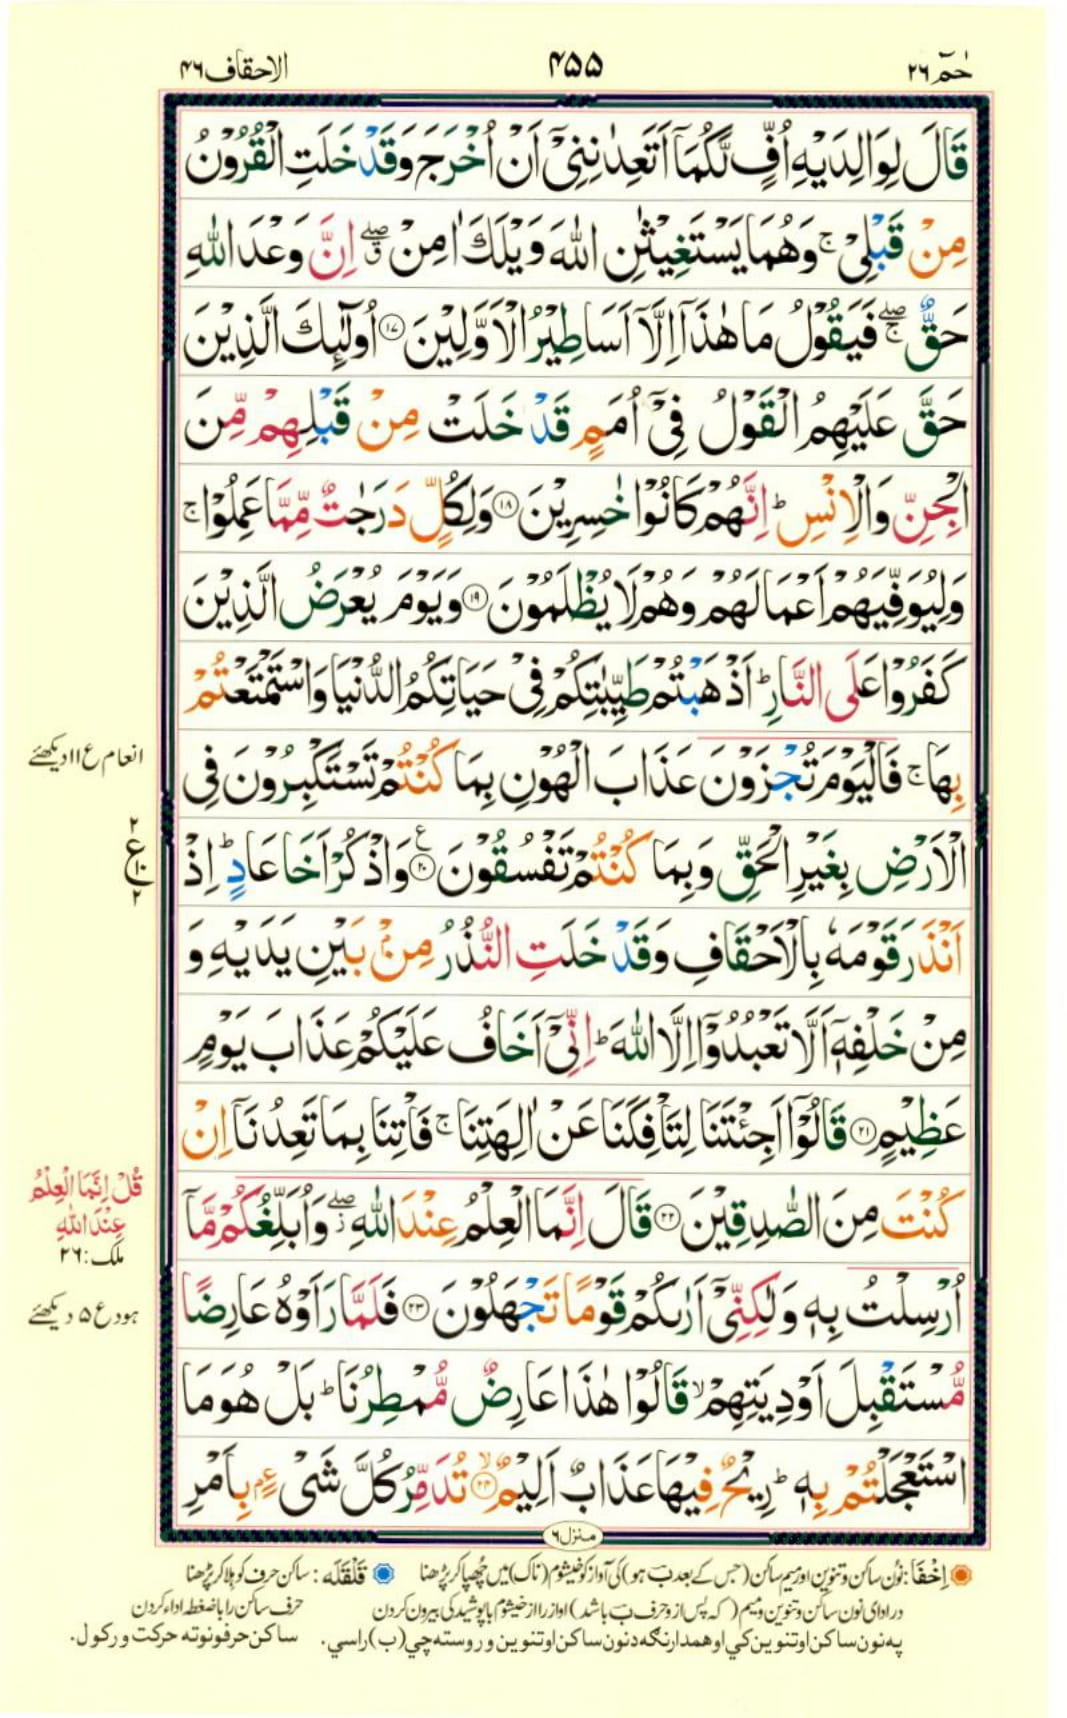 حٰمٓ ٢٦
۴۵۵
الاحقاف ۴۶
قَالَ لِوَالِدَيْهِ اُفٍّ لَّكُمَاۤ اَتَعِدٰنِنِيْۤ اَنْ اُخْرَجَ وَقَدْ خَلَتِ الْقُرُوْنُ
مِنْ قَبْلِيْ ۚ وَهُمَا يَسْتَغِيْثٰنِ اللّٰهَ وَيْلَكَ اٰمِنْ ۖ ق اِنَّ وَعْدَ اللّٰهِ
حَقٌّ ۖۚ فَيَقُوْلُ مَا هٰذَاۤ اِلَّاۤ اَسَاطِيْرُ الْاَوَّلِيْنَ ﴿۱۷﴾ اُولٰٓئِكَ الَّذِيْنَ
حَقَّ عَلَيْهِمُ الْقَوْلُ فِيْۤ اُمَمٍ قَدْ خَلَتْ مِنْ قَبْلِهِمْ مِّنَ
الْجِنِّ وَالْاِنْسِ ؕ اِنَّهُمْ كَانُوْا خٰسِرِيْنَ ﴿۱۸﴾ وَلِكُلٍّ دَرَجٰتٌ مِّمَّا عَمِلُوْا ۚ
وَلِيُوَفِّيَهُمْ اَعْمَالَهُمْ وَهُمْ لَا يُظْلَمُوْنَ ﴿۱۹﴾ وَيَوْمَ يُعْرَضُ الَّذِيْنَ
كَفَرُوْا عَلَى النَّارِ ؕ اَذْهَبْتُمْ طَيِّبٰتِكُمْ فِيْ حَيَاتِكُمُ الدُّنْيَا وَاسْتَمْتَعْتُمْ
بِهَا ۚ فَالْيَوْمَ تُجْزَوْنَ عَذَابَ الْهُوْنِ بِمَا كُنْتُمْ تَسْتَكْبِرُوْنَ فِي
انعام ع ۱۱ دیکھئے
الْاَرْضِ بِغَيْرِ الْحَقِّ وَبِمَا كُنْتُمْ تَفْسُقُوْنَ ﴿۲۰﴾ وَاذْكُرْ اَخَا عَادٍ ؕ اِذْ
۲
ع
۱۰
۲
اَنْذَرَ قَوْمَهٗ بِالْاَحْقَافِ وَقَدْ خَلَتِ النُّذُرُ مِنْۢ بَيْنِ يَدَيْهِ وَ
مِنْ خَلْفِهٖۤ اَلَّا تَعْبُدُوْۤا اِلَّا اللّٰهَ ؕ اِنِّيْۤ اَخَافُ عَلَيْكُمْ عَذَابَ يَوْمٍ
عَظِيْمٍ ﴿۲۱﴾ قَالُوْۤا اَجِئْتَنَا لِتَاْفِكَنَا عَنْ اٰلِهَتِنَا ۚ فَاْتِنَا بِمَا تَعِدُنَاۤ اِنْ
كُنْتَ مِنَ الصّٰدِقِيْنَ ﴿۲۲﴾ قَالَ اِنَّمَا الْعِلْمُ عِنْدَ اللّٰهِ ۖز وَاُبَلِّغُكُمْ مَّاۤ
قُلْ اِنَّمَا الْعِلْمُ
عِنْدَ اللّٰهِ
ملک: ۲۶
اُرْسِلْتُ بِهٖ وَلٰكِنِّيْۤ اَرٰىكُمْ قَوْمًا تَجْهَلُوْنَ ﴿۲۳﴾ فَلَمَّا رَاَوْهُ عَارِضًا
ہود ع ۵ دیکھئے
مُّسْتَقْبِلَ اَوْدِيَتِهِمْ ۙ قَالُوْا هٰذَا عَارِضٌ مُّمْطِرُنَا ؕ بَلْ هُوَ مَا
اسْتَعْجَلْتُمْ بِهٖ ؕ رِيْحٌ فِيْهَا عَذَابٌ اَلِيْمٌ ۙ﴿۲۴﴾ تُدَمِّرُ كُلَّ شَيْءٍۢ بِاَمْرِ
منزل ۶
اِخْفَا: نون ساکن و تنوین اور میم ساکن (جس کے بعد بَ ہو) کی آواز کو خیشوم (ناک) میں چھپا کر پڑھنا
قَلْقَلَه: ساکن حرف کو ہلا کر پڑھنا
در ادای نون ساکن و تنوین و میم (که پس از و حرف بَ باشد) اواز را از خیشوم با پوشیدگی بیرون کردن
حرف ساکن را با ضغطه اداء کردن
په نون ساکن او تنوین کي او همدارنګه د نون ساکن او تنوین و روسته چي (ب) راسي.
ساکن حرفونو ته حرکت ورکول.